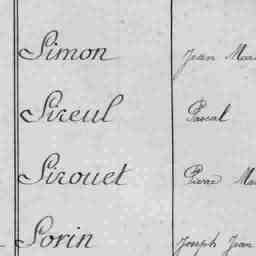 Simon Jean
Sireul Pascal
Sirouet Pierre
Sorin Joseph Jean